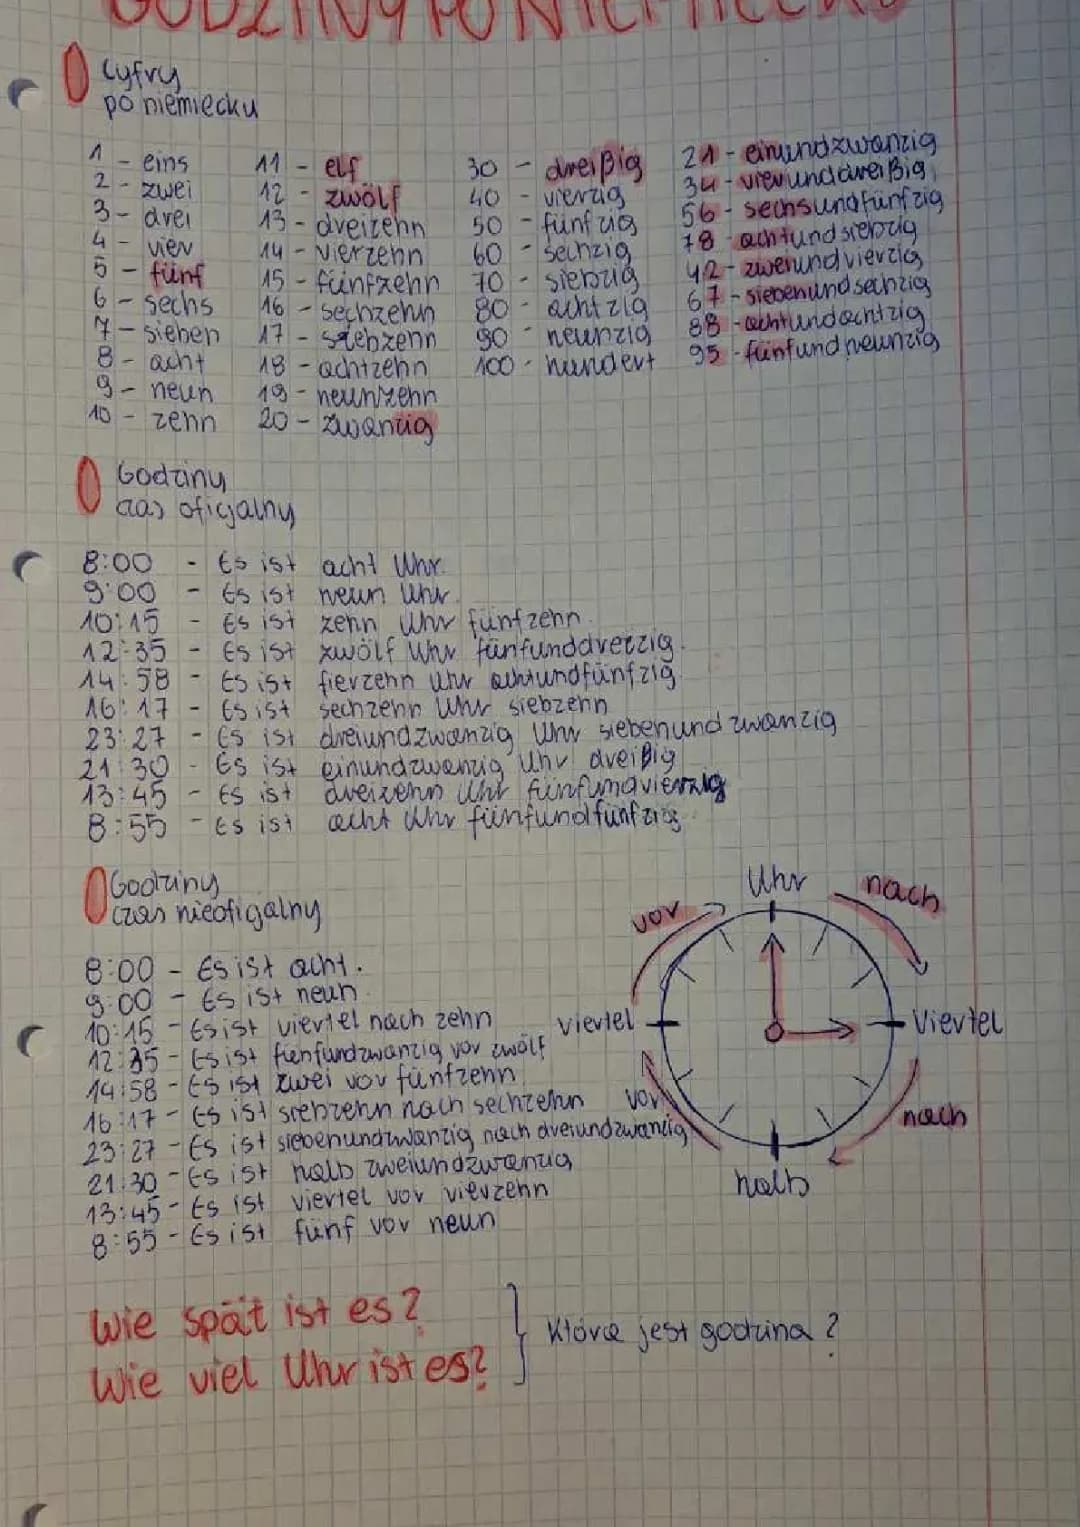 GODZINY PO NIEMIECKU
Cyfry
po niemiecku
1 - eins
2 - zwei
3 - drei
4 - vier
5 - fünf
6 - sechs
7 - sieben
8 - acht
9 - neun
10 - zehn
11 - elf
12 - zwölf
13 - dreizehn
14 - vierzehn
15 - fünfzehn
16 - sechzehn
17 - siebzehn
18 - achtzehn
19 - neunzehn
20 - zwanzig
30 - dreißig
40 - vierzig
50 - fünfzig
60 - sechzig
70 - siebzig
80 - achtzig
90 - neunzig
100 - hundert
21 - einundzwanzig
34 - vierunddreißig
56 - sechsundfünfzig
78 - achtundsiebzig
42 - zweiundvierzig
67 - siebenundsechzig
88 - achtundachtzig
95 - fünfundneunzig
Godziny
czas oficjalny
8:00 - Es ist acht Uhr.
9:00 - Es ist neun Uhr.
10:15 - Es ist zehn Uhr fünfzehn.
12:35 - Es ist zwölf Uhr fünfunddreizig.
14:58 - Es ist fierzehn Uhr achtundfünfzig
16:17 - Es ist sechzehn Uhr siebzehn
23:27 - Es ist dreiundzwanzig Uhr siebenundzwanzig
21:30 - Es ist einundzwanzig Uhr dreißig
13:45 - Es ist dreizehn Uhr fünfundvierzig
8:55 - Es ist acht Uhr fünfundfünfzig.
Godziny
czas nieofigalny
8:00 - Es ist acht.
9:00 - Es ist neun.
10:15 - Es ist viertel nach zehn
12:35 - Es ist fienfundzwanzig vor zwölf
14:58 - Es ist zwei vor fünfzehn
16:17 - Es ist siebzehn nach sechzehn
23:27 - Es ist siebenundzwanzig nach dreiundzwanzig
21:30 - Es ist halb zweiundzwanzig
13:45 - Es ist viertel vor vierzehn
8:55 - Es ist fünf vor neun
Uhr
vor
nach
viertel
Viertel
vor
nach
halb
Wie spät ist es?
Wie viel Uhr ist es?
Która jest godzina?